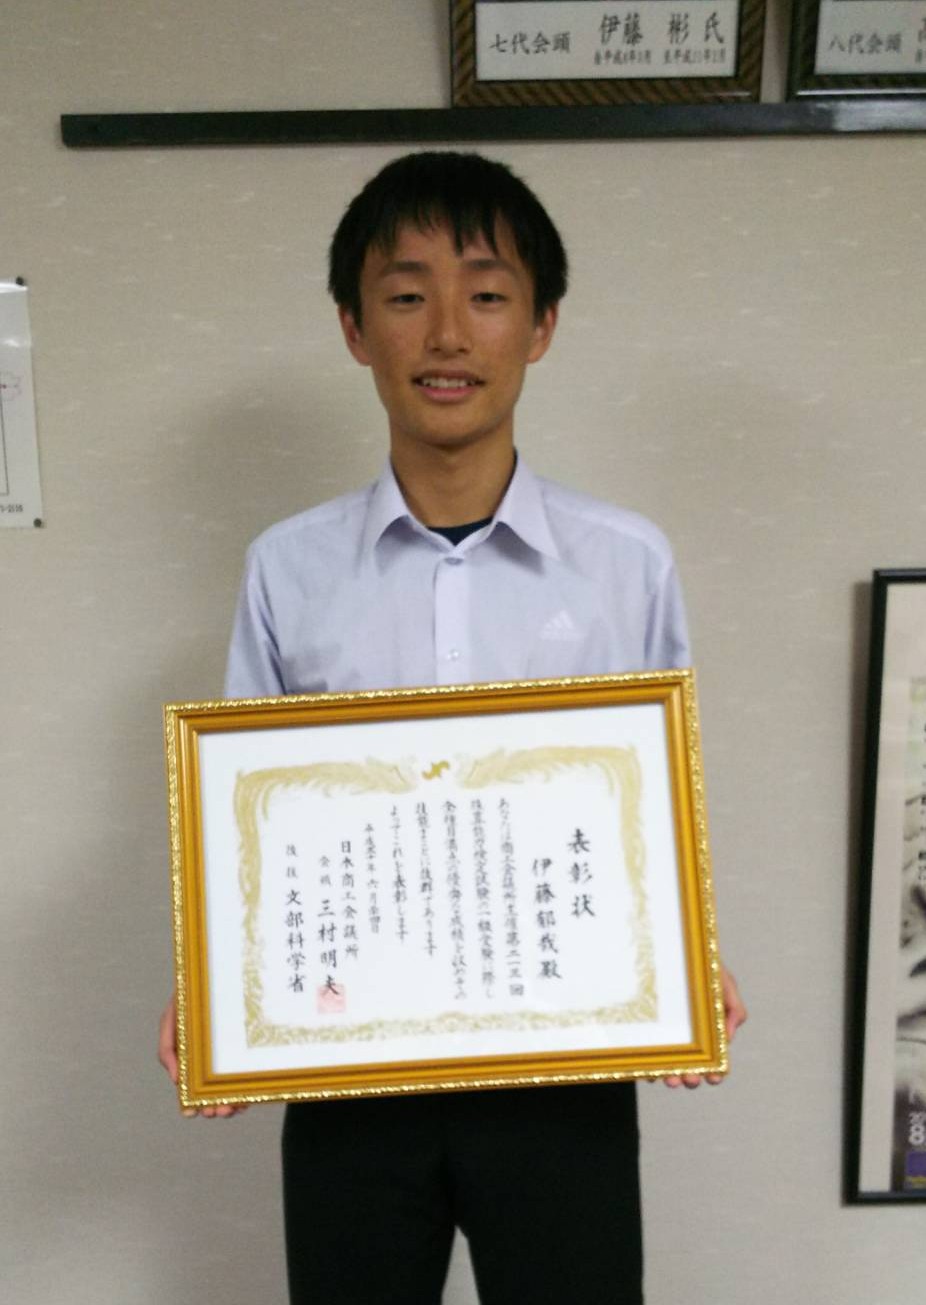 七代会頭 伊藤 彬 氏
自平成8年3月 至平成21年2月
八代会頭
表彰状
伊藤郁哉殿
あなたは商工会議所主催第二一三回
珠算能力検定試験の一級受験に際し
全種目満点の優秀な成績を収めその
技能まことに抜群であります
よってこれを表彰します
平成三十年六月二十四日
日本商工会議所
会頭 三村明夫
後援 文部科学省
adidas